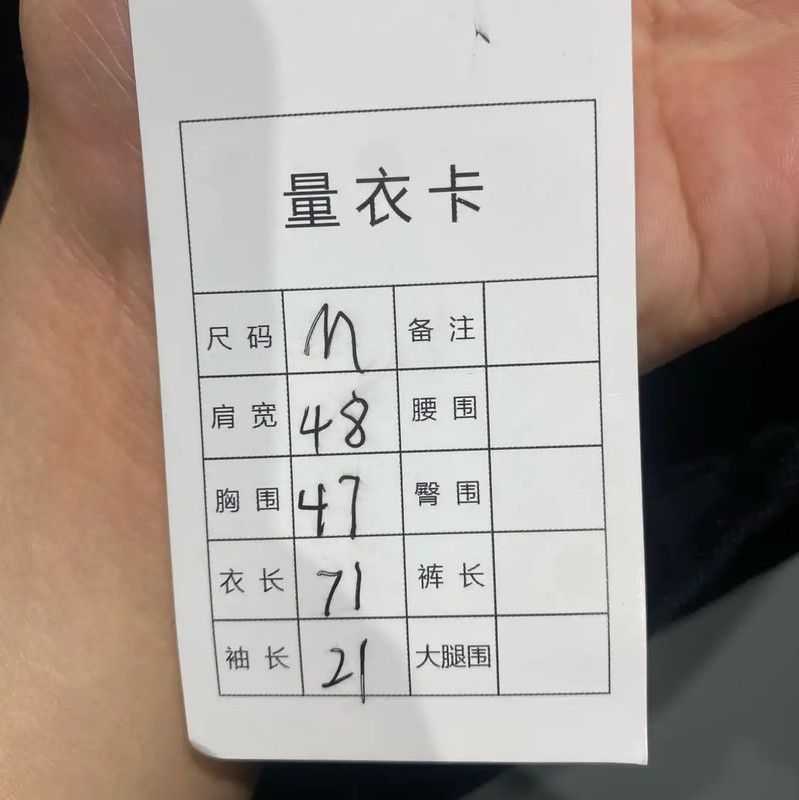 量衣卡
尺码 M 备注
肩宽 48 腰围
胸围 47 臀围
衣长 71 裤长
袖长 21 大腿围